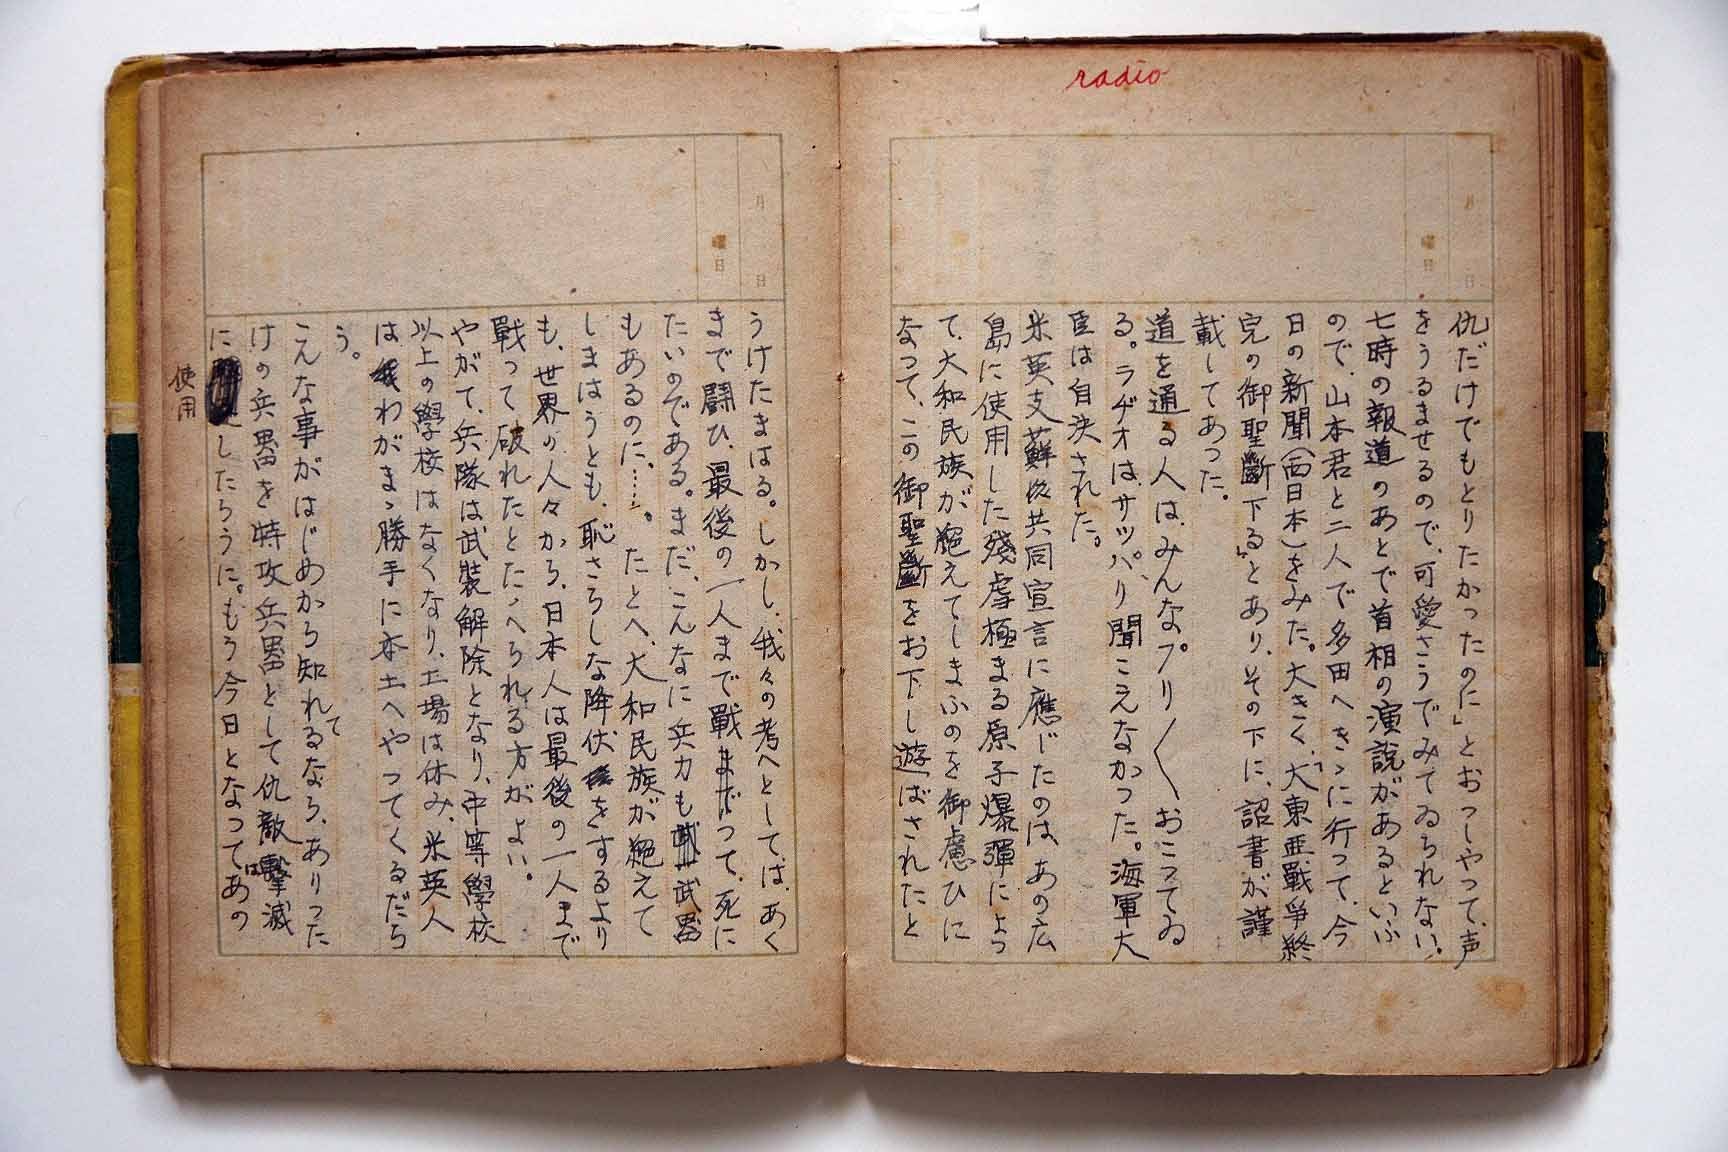 radio
月 日
曜日
仇だけでもとりたかったのに」とおっしやって、声
をうるませるので、可愛さうでみてゐられない。
七時の報道のあとで首相の演説があるといふ
ので、山本君と二人で多田へきゝに行って、今
日の新聞(西日本)をみた。大きく、大東亜戰爭終
完の御聖斷下る」とあり、その下に、詔書が謹
載してあった。
道を通る人は、みんなプリ〱おこってゐ
る。ラヂオは、サッパリ聞こえなかった。海軍大
臣は自決された。
米英支蘇共同宣言に應じたのは、あの広
島に使用した殘虐極まる原子爆彈によっ
て、大和民族が絶えてしまふのを御慮ひに
なって、この御聖斷をお下し遊ばされたと
月 日
曜日
うけたまはる。しかし、我々の考へとしては、あく
まで闘ひ、最後の一人まで戰って、死に
たいのである。まだ、こんなに兵力も武器
もあるのに……。たとへ、大和民族が絶えて
しまはうとも、恥さらしな降伏をするより
も、世界の人々から、日本人は最後の一人まで
戰って破れたとたゝへられる方がよい。
やがて、兵隊は武裝解除となり、中等學校
以上の學校はなくなり、工場は休み、米英人
はわがまゝ勝手に本土へやってくるだら
う。
こんな事がはじめから知れてるなら、ありった
けの兵器を特攻兵器として仇敵撃滅
に使用したらうに。もう今日となってはあの